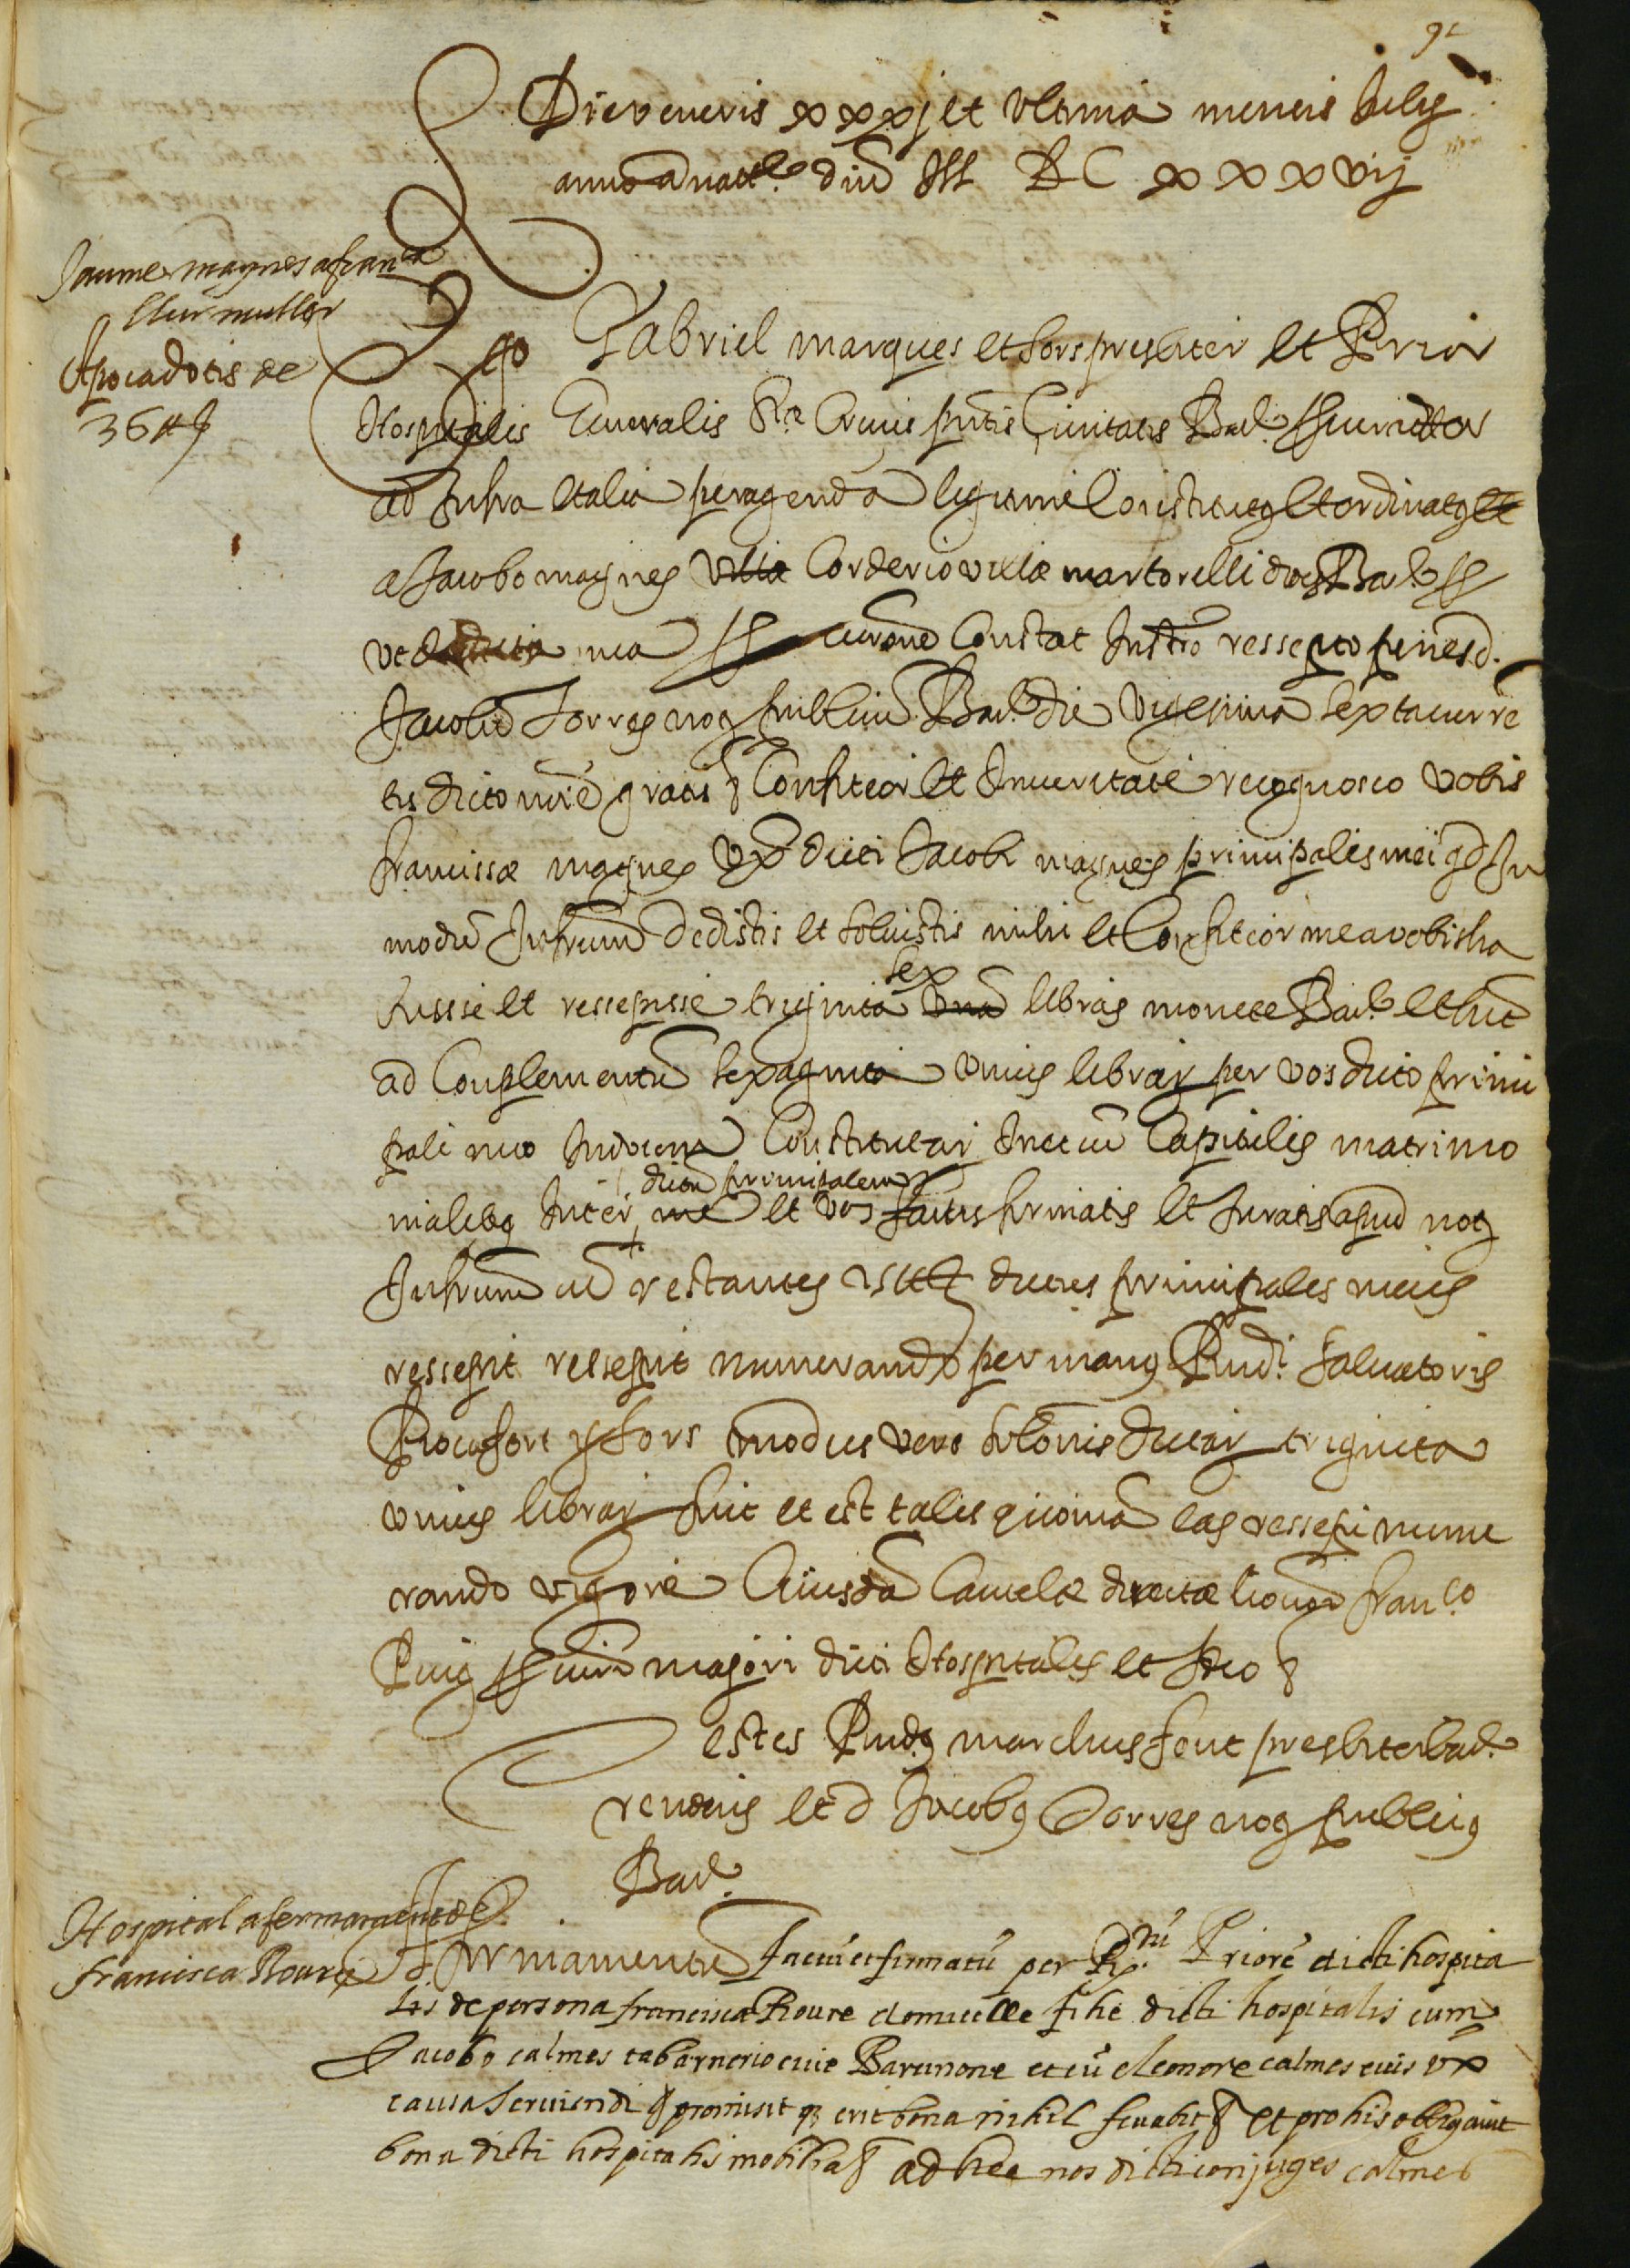 92
Die veneris xxxj et ultima mensis Julij
anno a natte dni M DC xxxvij
Jaume magnes a franca
llur muller
Apoca dotis de
36 ll s
Ego Gabriel marques et fors presbiter et Prior
Hospitalis Generalis Ste Crucis pntis Civitatis Bar
ad Infra et alia peragenda legitime Constitutus et ordinatus et
a Jacobo magnes villæ Corderio villæ martorelli dioc Bar
ut mea constat Instro ressepto penes d.
Jacobu Torres nos publicu Bar die vigesima sexta curre
tis dicto noie gratis & Confiteor et In veritate recognosco vobis
francissæ magnes Ux dicti Jacobi magnes principalis mei qd In
modu Infrum dedistis et solvistis mihi et Confiteor me a vobis ha
buisse et ressepisse triginta sex una libras monete Bar et sut
ad Complementu sexaginta unius librar per vos dicto princi
pali meo In dotem Constitutar Capitulis matrimo
nialibs Inter dictu principalem me et vos factis firmatis et Juratis apud nos
Infrum cu restantes 25 ll dictus principalis meus
ressepit ressepit numerando per manus Rndi salvatoris
Rocafort y fors modus vero solonis dictar triginta
unius librar fuit et est talis quoniam eas ressepi nume
rando vigore Cuiusda Cautelæ directæ honor franco
Puig majori dicti Hospitalis et Ideo &
estes Rnds marchus font presbiter Bar
rendus et d Jacobs Torres nos publics
Bar
Hospital afermament de
francisca Roure
Firmamentu factu et firmatu per Rnu Priore dicti hospita
lis de persona francisca Roure domicelle filie dicti hospitalis cum
Jacobo calmes tabarnerio cive Barcinone et cu eleonore calmes eius ux
causa serviendi & promisit q erit bona nihil &  et pro his obligavit
bona dicti hospitalis mobilia & ad hec nos dicti conjuges calmes